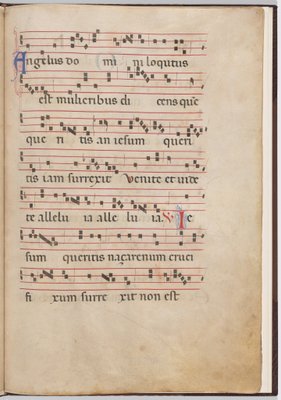 Angelus do mi ni loqutus
est mulieribus di cens que
que ri tis an iesum queri
tis iam surrexit Venite et uide
te allelu ia alle lu ia. V Ie
sum queritis naçarenum cruci
fi xum surre xit non est